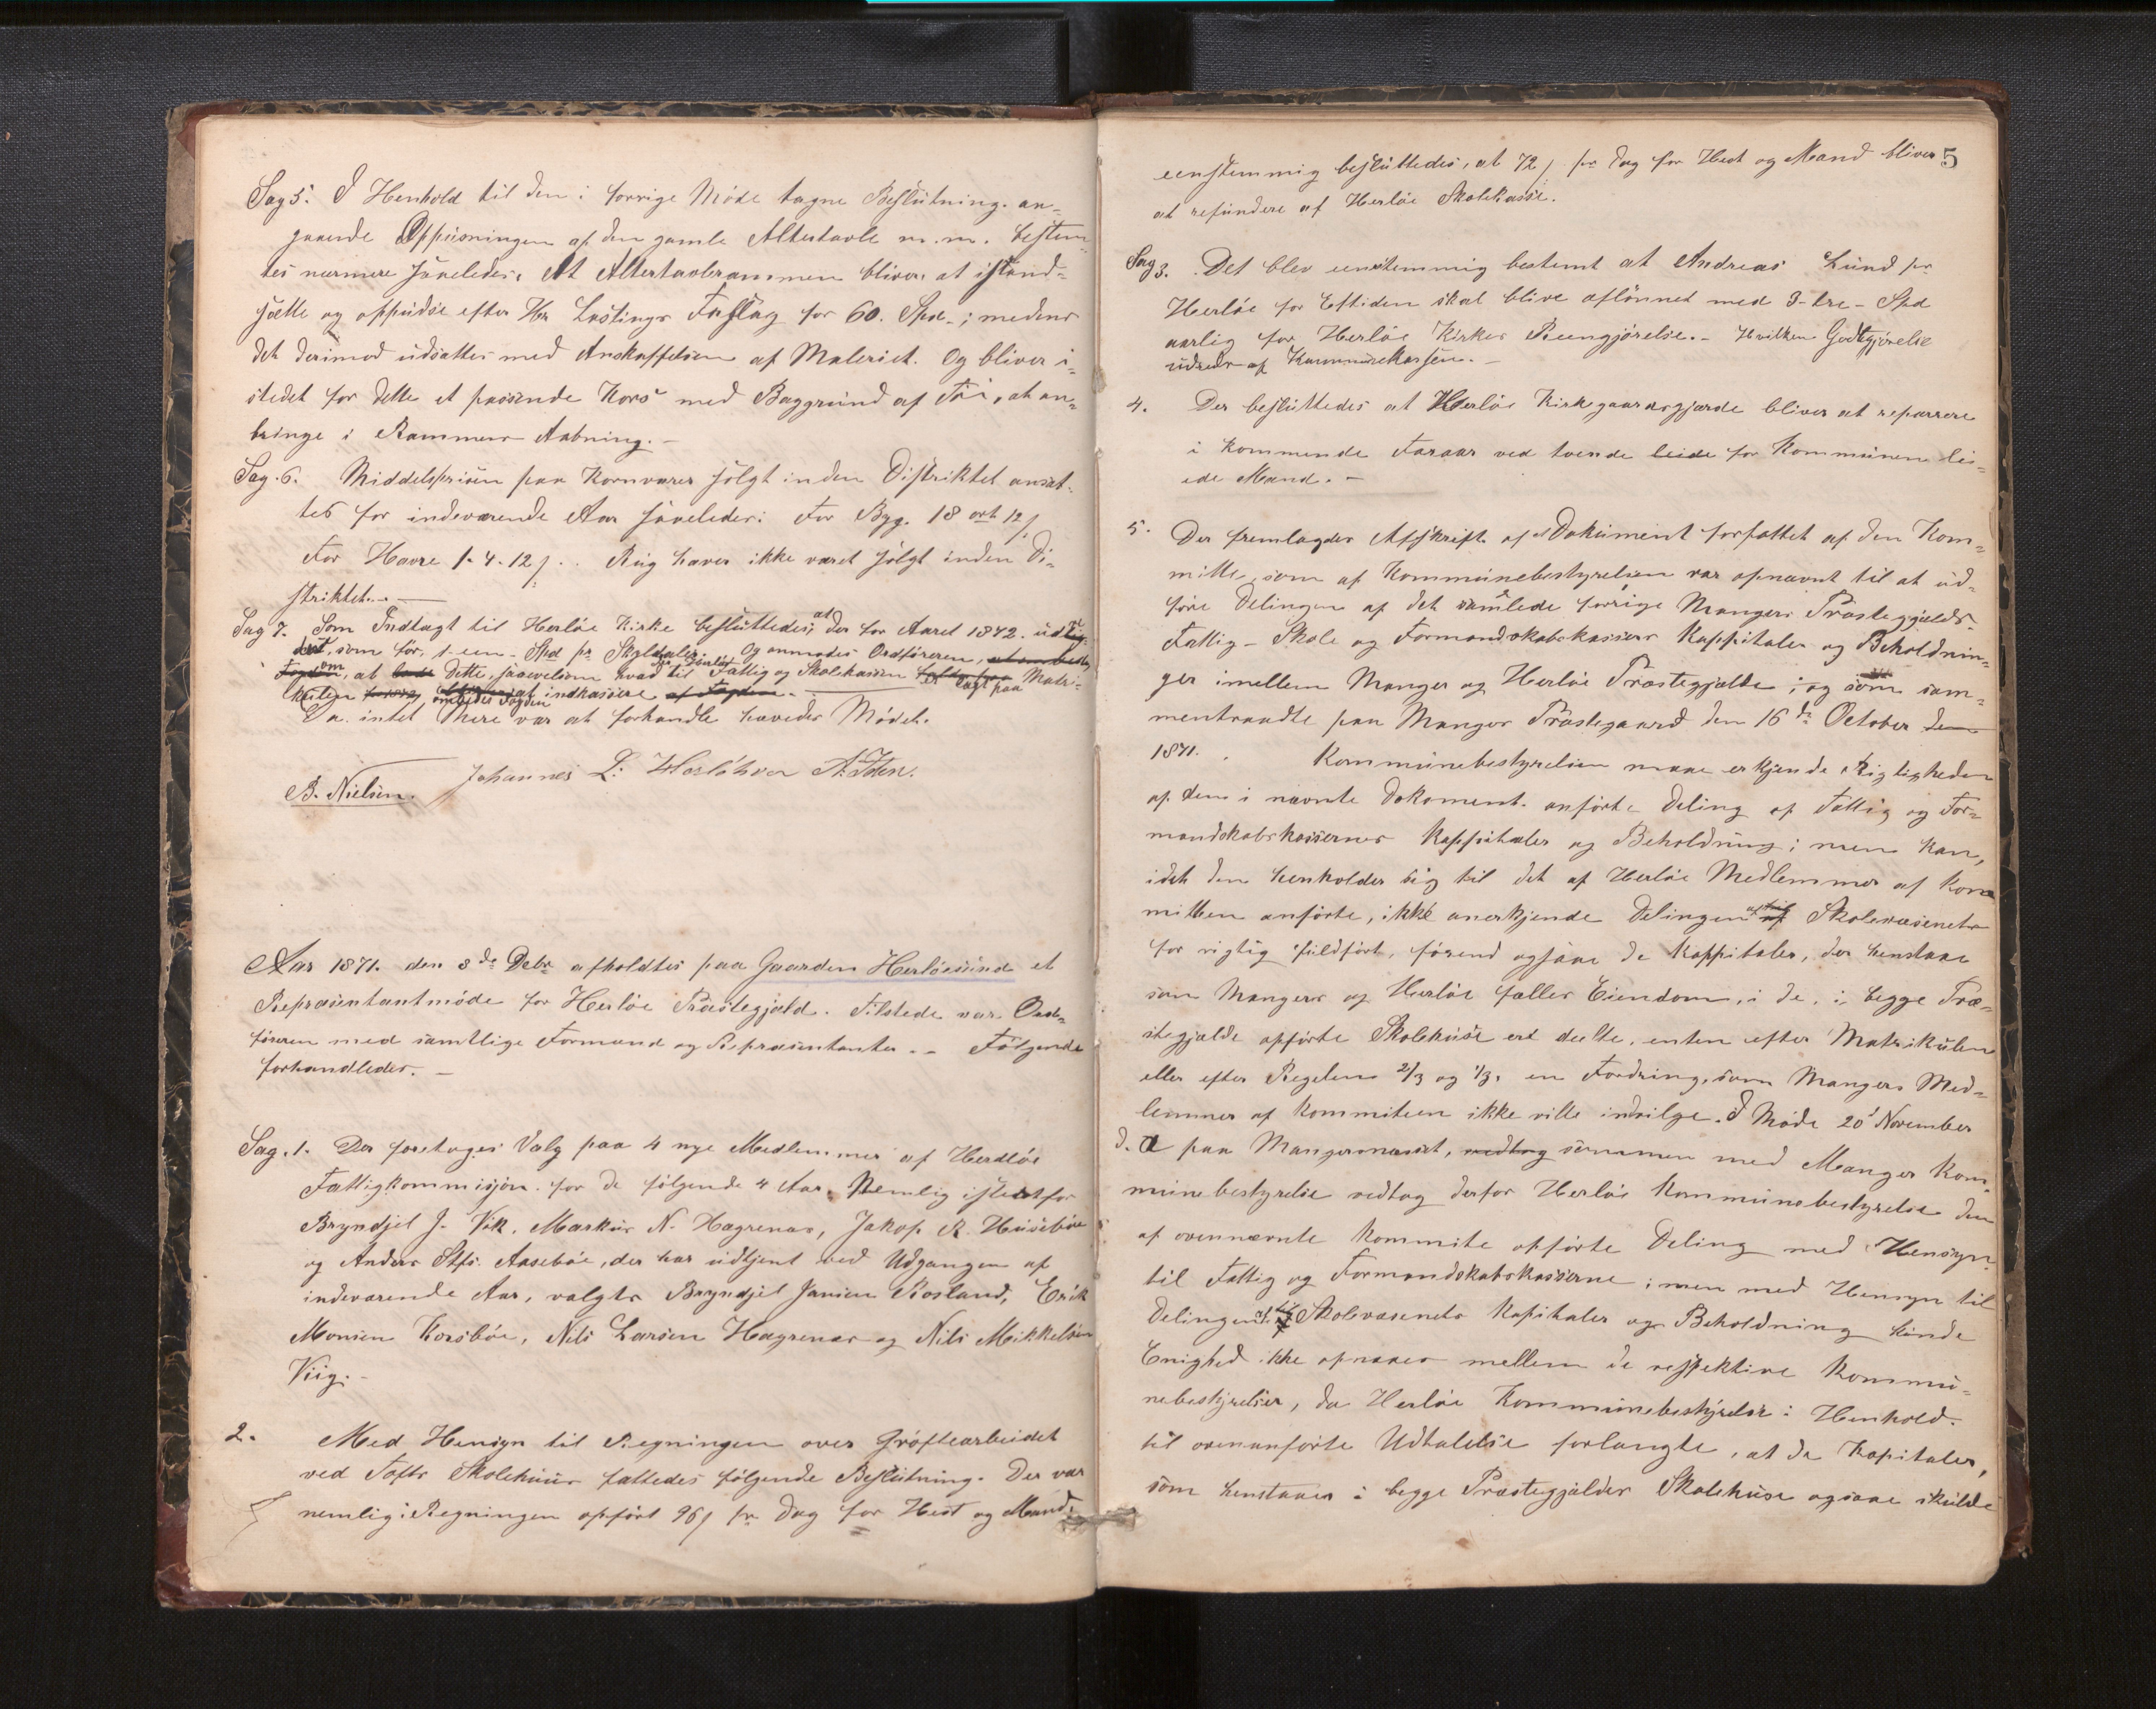 Sag 5. I Henhold til den i forrige Møde tagne Beslutning an-
gaaende Oppusningen af den gamle Altertavle m.m. bestem-
tes nærmere saaledes: At Altertavlerammen bliver at istand-
sætte og oppudse efter Hr Lostings Forslag for 60. Spd.; medens
det derimod udsættes med Anskaffelsen af Maleriet. Og bliver i-
stedet for dette et passende Kors med Baggrund af at an-
bringe i Rammens Aabning.-
Sag. 6. Middelprisen paa Kornvarer solgt inden Distriktet ansat-
tes for indeværende Aar saaledes: For Byg. 18 ort 12 s
For Havre 1. 4. 12 s. Rug haves ikke været solgt inden Di-
striktet.-
Sag 7. Som Indtægt til Herløe Kirke besluttedes, at der for Aaret 1872. udlig-
des, som før, 1-een- Spd pr Skylddaler. Og anmodes Ordføreren,
om, at Dette, saavelsom hvad til Fattig og Skolekassen er lagt paa Matri-
kulen ombedes Fogden at indkassere
Da intet mere var at forhandle hævedes Mødet.
B. Nielsen. Johannes L: Herløhver
Aar 1871. den 8de Debr afholdtes paa Gaarden Herløesund et
Repræsentantmøde for Herløe Præstegjæld. Tilstede var Ord-
føreren med samtlige Formænd og Repræsentanter. - Følgende
forhandledes. -
Sag. 1. Der foretoges Valg paa 4 nye Medlemmer af Herdløe
Fattigkommisjon for de følgende 4 Aar. Nemlig istedetfor
Bryndjel J. Vik, Markus N. Hagrenæs, Jakop R. Husebøe
og Anders Aasebøe, der har udtjent ved Udgangen af
indeværende Aar, valgtes Bryndjel Jansen Rosland, Erik
Monsen Korsbøe, Nils Larsen Hagrenæs og Nils Mikkelsen
Viig.-
2. Med Hensyn til Regningen over Grøftearbeidet
ved Tofts Skolehuus fattedes følgende Beslutning. Der var
nemlig i Regningen opført 96 s pr Dag for Hest og Mand,
5
eenstemmig besluttedes, at 72 s pr Dag for Hest og Mand bliver
at refundere af Herløe Skolekasse.
Sag 3. Det blev eenstemmig bestemt at Andreas Lund pr
Herløe for Eftiden skal blive aflønnet med 3-tre- Spd
aarlig for Herløe Kirkes Reengjørelse.- Hvilken Godtgjørelse
udredes af Kommunekassen.-
4. Der besluttedes at Herløe Kirkegaardsgjærde bliver at reparrere
i kommende Faraar ved tvende leide for Kommunen lei-
ede Mænd.-
5. Der fremlagdes Afskrift af et Dokument forfattet af den Kom-
mitte, som af Kommunebestyrelsen var opnævnt til at ud-
føre Delingen af det samlede forrige Mangers Præstegjælds
Fattig- Skole og Formandskabskassers Kappitaler og Beholdnin-
ger imellem Manger og Herløe Præstegjælde; og som sam-
mentraadte paa Manger Præstegaard den 16de October
1871. Kommunebestyrelsen maae erkjende Rigtigheden
af den i nævnte Dokoment anførte Deling af Fattig og For-
mandskabskassernes Kappitaler og Beholdning; men kan,
idet den henholder sig til det af Herløe Medlemmer af Kom
mitten anførte, ikke anerkjende Delingen af Skolevæsenets
for rigtig fuldført, førend ogsaae de Kappitaler, der henstaae
som Mangers og Herløe fælles Eiendom, i de, i begge Præ-
stegjælde opførte Skolehuse ere deelte, enten efter Matrikulen
eller efter Regelen 2/3 og 1/3, en Fordring, som Mangers Med-
lemmer af Kommiteen ikke ville indvilge. I Møde 20' November
d. A paa Mangernæset, vedtog sammen med Manger Kom-
munebestyrelse vedtog derfor Herløe Kommunebestyrelse den
af ovennævnte Kommite opførte Deling med Hensyn
til Fattig og Formandskabskasserne; men med Hensyn til
Delingen af Skolevæsenets Kapitaler og Beholdning kunde
Enighed ikke opnaaes mellem de respektive Kommu-
nebestyrelser, da Herløe Kommunebestyrelse i Henhold
til ovenanførte Udtalelse forlangte, at de Kapitaler,
som henstaaer i begge Præstegjælders Skolehuse ogsaae skulde